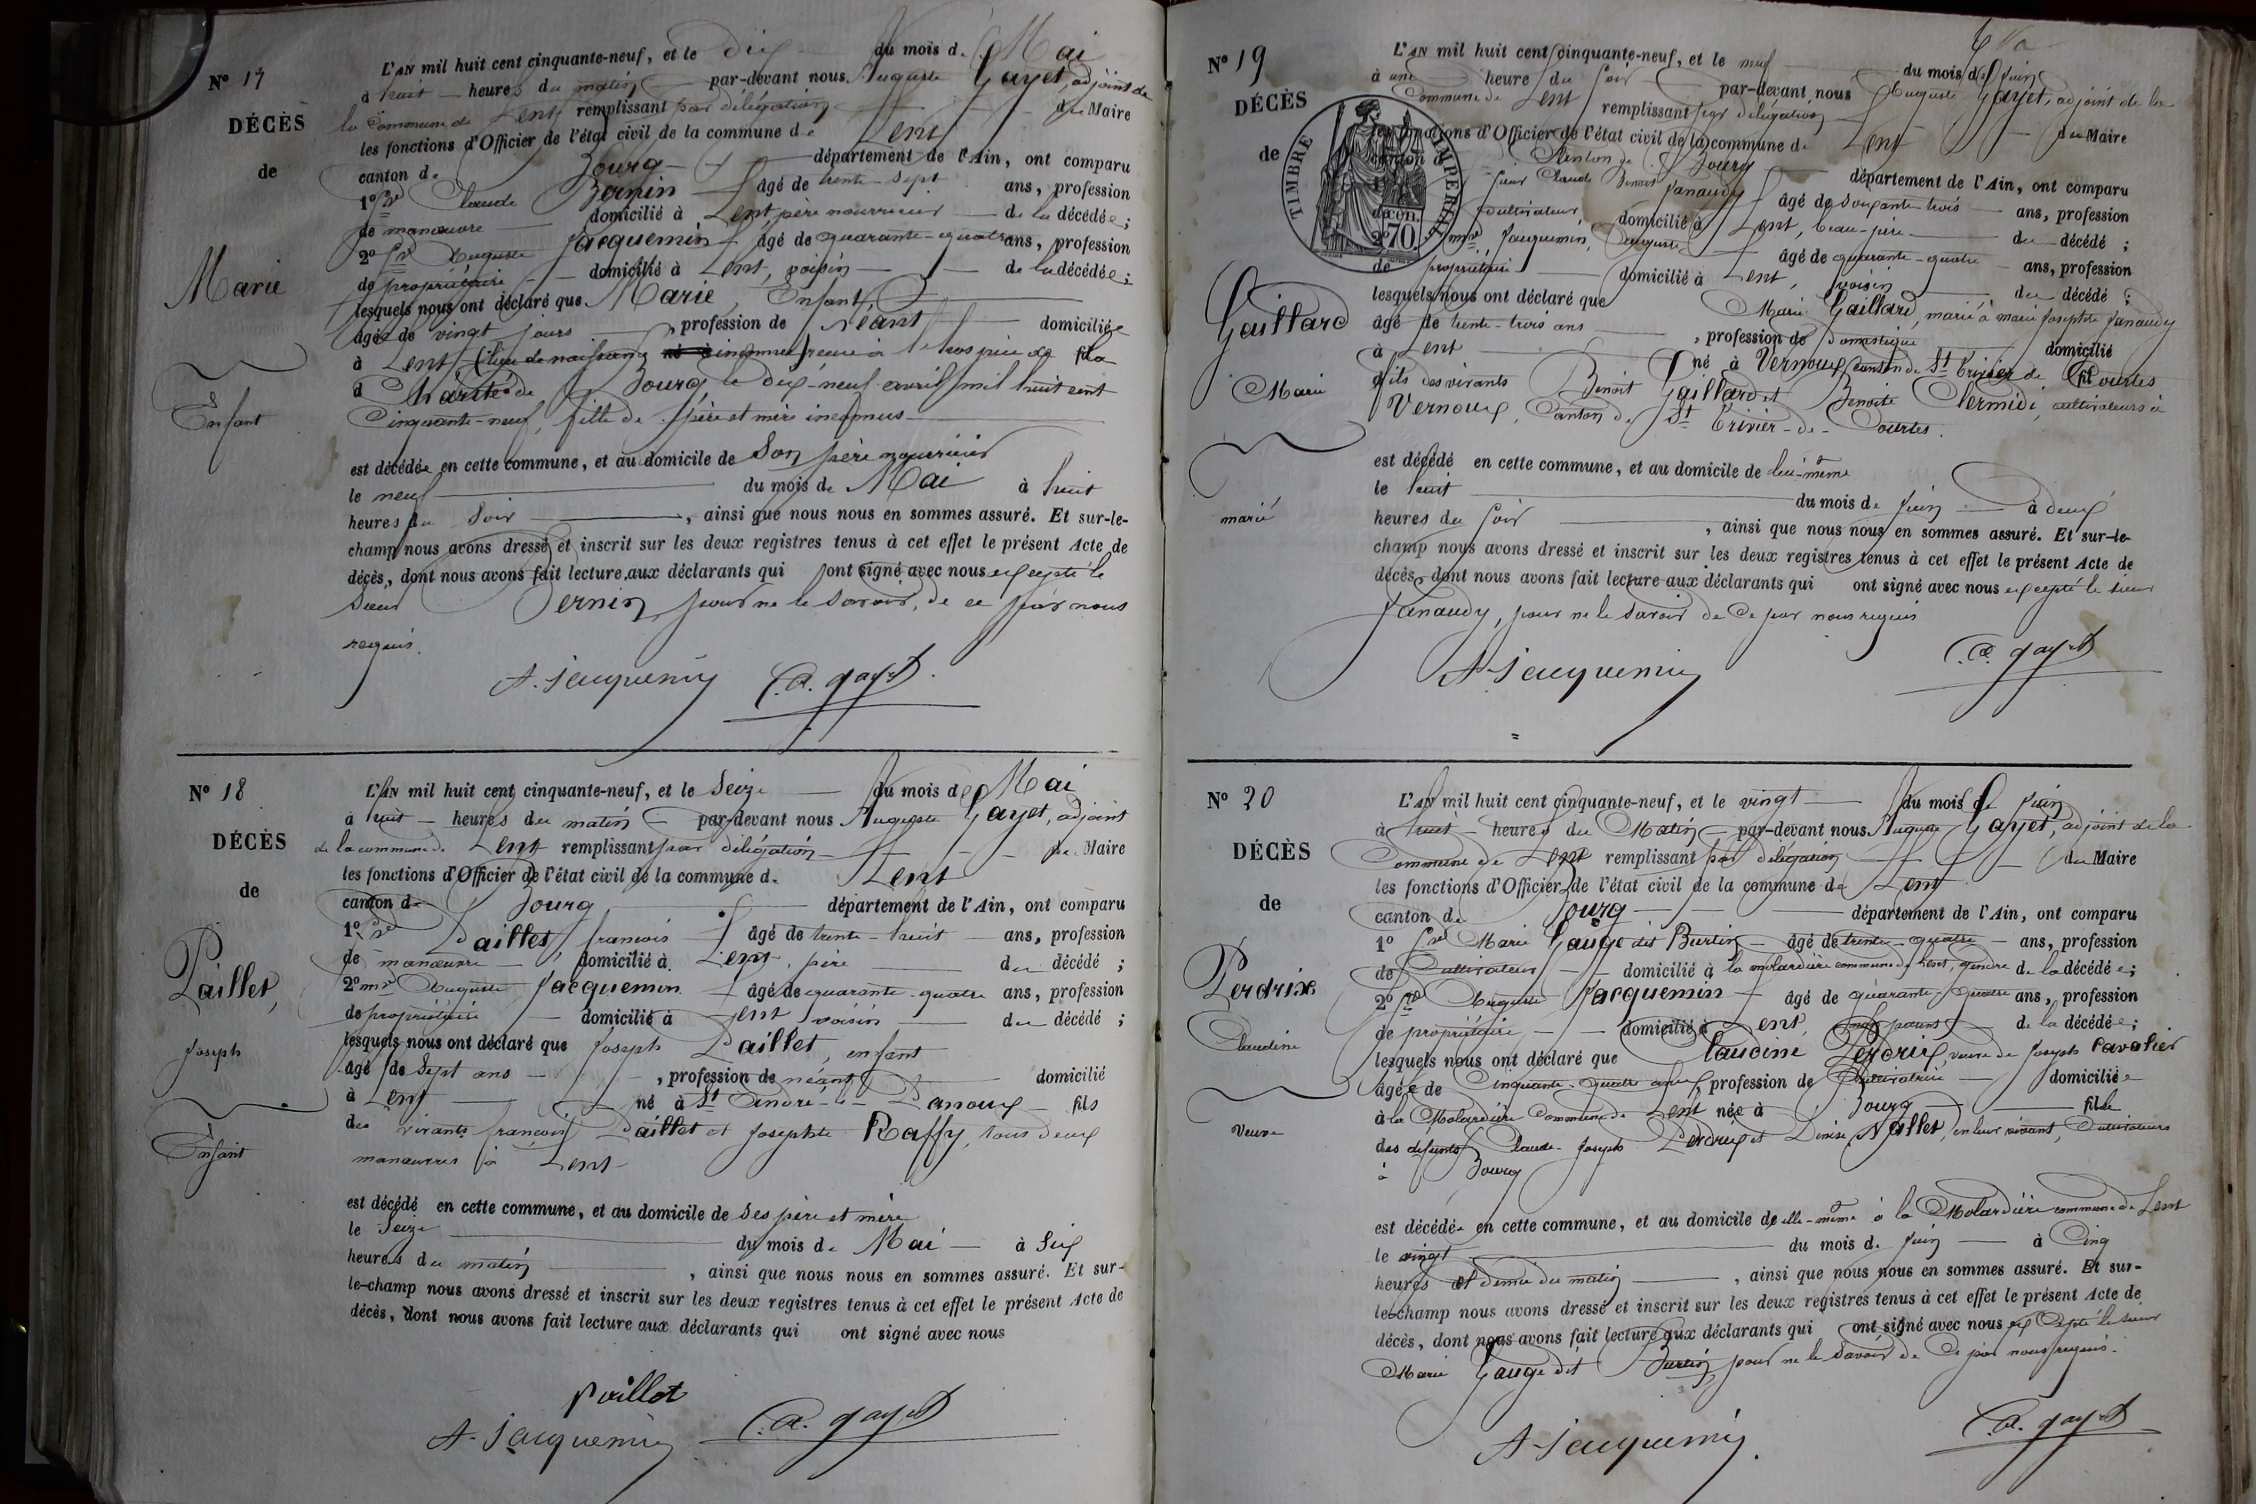 N° 17
DÉCÈS
de
Marie
Enfant
L'AN mil huit cent cinquante-neuf, et le dix du mois de Mai
à huit heures du matin par-devant nous Auguste Gayet, adjoint de
la commune de Lent remplissant par délégation du Maire
les fonctions d'Officier de l'état civil de la commune de Lent
canton de Bourg département de l'Ain, ont comparu
1° Sr Claude Bernin âgé de trente-sept ans, profession
de manœuvre domicilié à Lent, père nourricier de la décédée;
2° Sr Auguste Jacquemin âgé de quarante-quatre ans, profession
de propriétaire domicilié à Lent, voisin de la décédée;
lesquels nous ont déclaré que Marie, Enfant,
âgée de vingt jours, profession de Néant domiciliée
à Lent (lieu de naissance inconnu) reçue à l'hospice de la
Charité de Bourg le dix-neuf avril mil huit cent
Cinquante-neuf, fille de père et mère inconnus
est décédée en cette commune, et au domicile de Son père nourricier
le neuf du mois de Mai à huit
heures du Soir, ainsi que nous nous en sommes assuré. Et sur-le-
champ nous avons dressé et inscrit sur les deux registres tenus à cet effet le présent Acte de
décès, dont nous avons fait lecture aux déclarants qui ont signé avec nous excepté le
Sieur Bernin, pour ne le savoir, de ce par nous
requis.
A. Jacquemin C.A. gayet
N° 18
DÉCÈS
de
Paillet,
Joseph
Enfant
L'AN mil huit cent cinquante-neuf, et le Seize du mois de Mai
à huit heures du matin par-devant nous Auguste Gayet, adjoint
de la commune de Lent remplissant par délégation du Maire
les fonctions d'Officier de l'état civil de la commune de Lent
canton de Bourg département de l'Ain, ont comparu
1° Sr Paillet, françois âgé de trente-huit ans, profession
de manœuvre domicilié à Lent, père du décédé;
2° mr Auguste Jacquemin âgé de quarante-quatre ans, profession
de propriétaire domicilié à Lent voisin du décédé;
lesquels nous ont déclaré que Joseph Paillet, enfant
âgé de Sept ans, profession de néant domicilié
à Lent né à St André-le-Panoux fils
des vivants françois Paillet et Josephte Raffy, tous deux
manœuvres à Lent
est décédé en cette commune, et au domicile de Ses père et mère
le Seize du mois de Mai à Six
heures du matin, ainsi que nous nous en sommes assuré. Et sur-
le-champ nous avons dressé et inscrit sur les deux registres tenus à cet effet le présent Acte de
décès, dont nous avons fait lecture aux déclarants qui ont signé avec nous
Paillet
A. Jacquemin C.A. gayet
N° 19
DÉCÈS
de
Gaillard
Marie
marié
TIMBRE IMPERIAL
70
L'AN mil huit cent cinquante-neuf, et le neuf du mois de Juin
à une heure du Soir par-devant nous Auguste Gayet, adjoint de la
Commune de Lent remplissant par délégation du Maire
les fonctions d'Officier de l'état civil de la commune de Lent
Canton de Bourg département de l'Ain, ont comparu
Sieur Claude Benoit Janaudy âgé de soixante-trois ans, profession
de Cultivateur, domicilié à Lent, beau-père du décédé;
2° mr Jacquemin, Auguste âgé de quarante-quatre ans, profession
de propriétaire domicilié à Lent, voisin du décédé;
lesquels nous ont déclaré que Marie Gaillard, marié à marie Josephte Janaudy
âgé de trente-trois ans, profession de Domestique domicilié
à Lent né à Vernoux canton de St Trivier de Courtes
fils des vivants Benoit Gaillard et Benoite Clermidi, cultivateurs à
Vernoux, Canton de St Trivier-de-Courtes.
est décédé en cette commune, et au domicile de lui-même
le huit du mois de Juin à deux
heures du Soir, ainsi que nous nous en sommes assuré. Et sur-le-
champ nous avons dressé et inscrit sur les deux registres tenus à cet effet le présent Acte de
décès, dont nous avons fait lecture aux déclarants qui ont signé avec nous excepté le sieur
Janaudy, pour ne le savoir de Ce par nous requis
A. Jacquemin C.A. gayet
N° 20
DÉCÈS
de
Perdrix
Claudine
Veuve
L'AN mil huit cent cinquante-neuf, et le vingt du mois de Juin
à huit heures du Matin par-devant nous Auguste Gayet, adjoint de la
Commune de Lent remplissant par délégation du Maire
les fonctions d'Officier de l'état civil de la commune de Lent
canton de Bourg département de l'Ain, ont comparu
1° Sr Marie Gauge dit Burtin âgé de trente-quatre ans, profession
de Cultivateur domicilié à la molardière commune de Lent, gendre de la décédée;
2° Sr Auguste Jacquemin âgé de quarante-quatre ans, profession
de propriétaire domicilié à Lent, de la décédée;
lesquels nous ont déclaré que Claudine Perdrix, veuve de Joseph Cavalier
âgée de Cinquante-quatre ans, profession de Cultivatrice domiciliée
à la Molardière Commune de Lent née à Bourg fille
des défunts Claude-Joseph Perdrix et Denise Vallet, en leur vivant, Cultivateurs
à Bourg
est décédée en cette commune, et au domicile d'elle-même à la Molardière commune de Lent
le vingt du mois de Juin à Cinq
heures et demie du matin, ainsi que nous nous en sommes assuré. Et sur-
le-champ nous avons dressé et inscrit sur les deux registres tenus à cet effet le présent Acte de
décès, dont nous avons fait lecture aux déclarants qui ont signé avec nous excepté le sieur
Marie Gauge dit Burtin, pour ne le savoir de Ce par nous requis.
A. Jacquemin. C.A. gayet